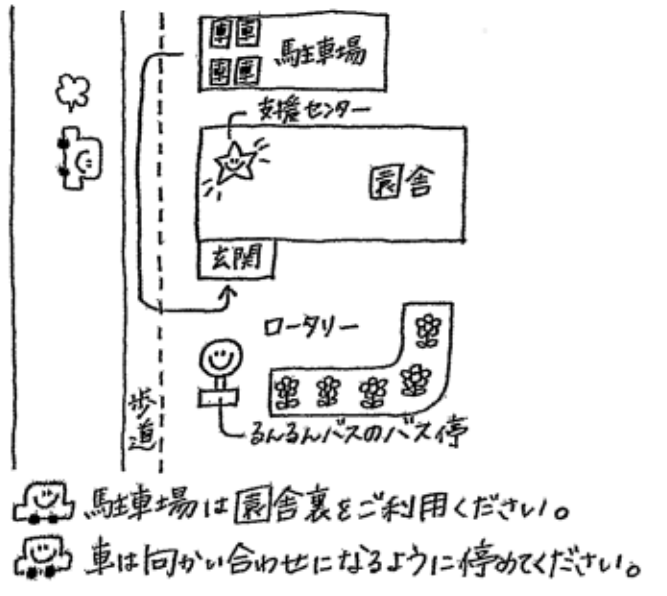 車車
車車
駐車場
支援センター
園舎
玄関
ロータリー
歩道
るんるんバスのバス停
駐車場は園舎裏をご利用ください。
車は向かい合わせになるように停めてください。